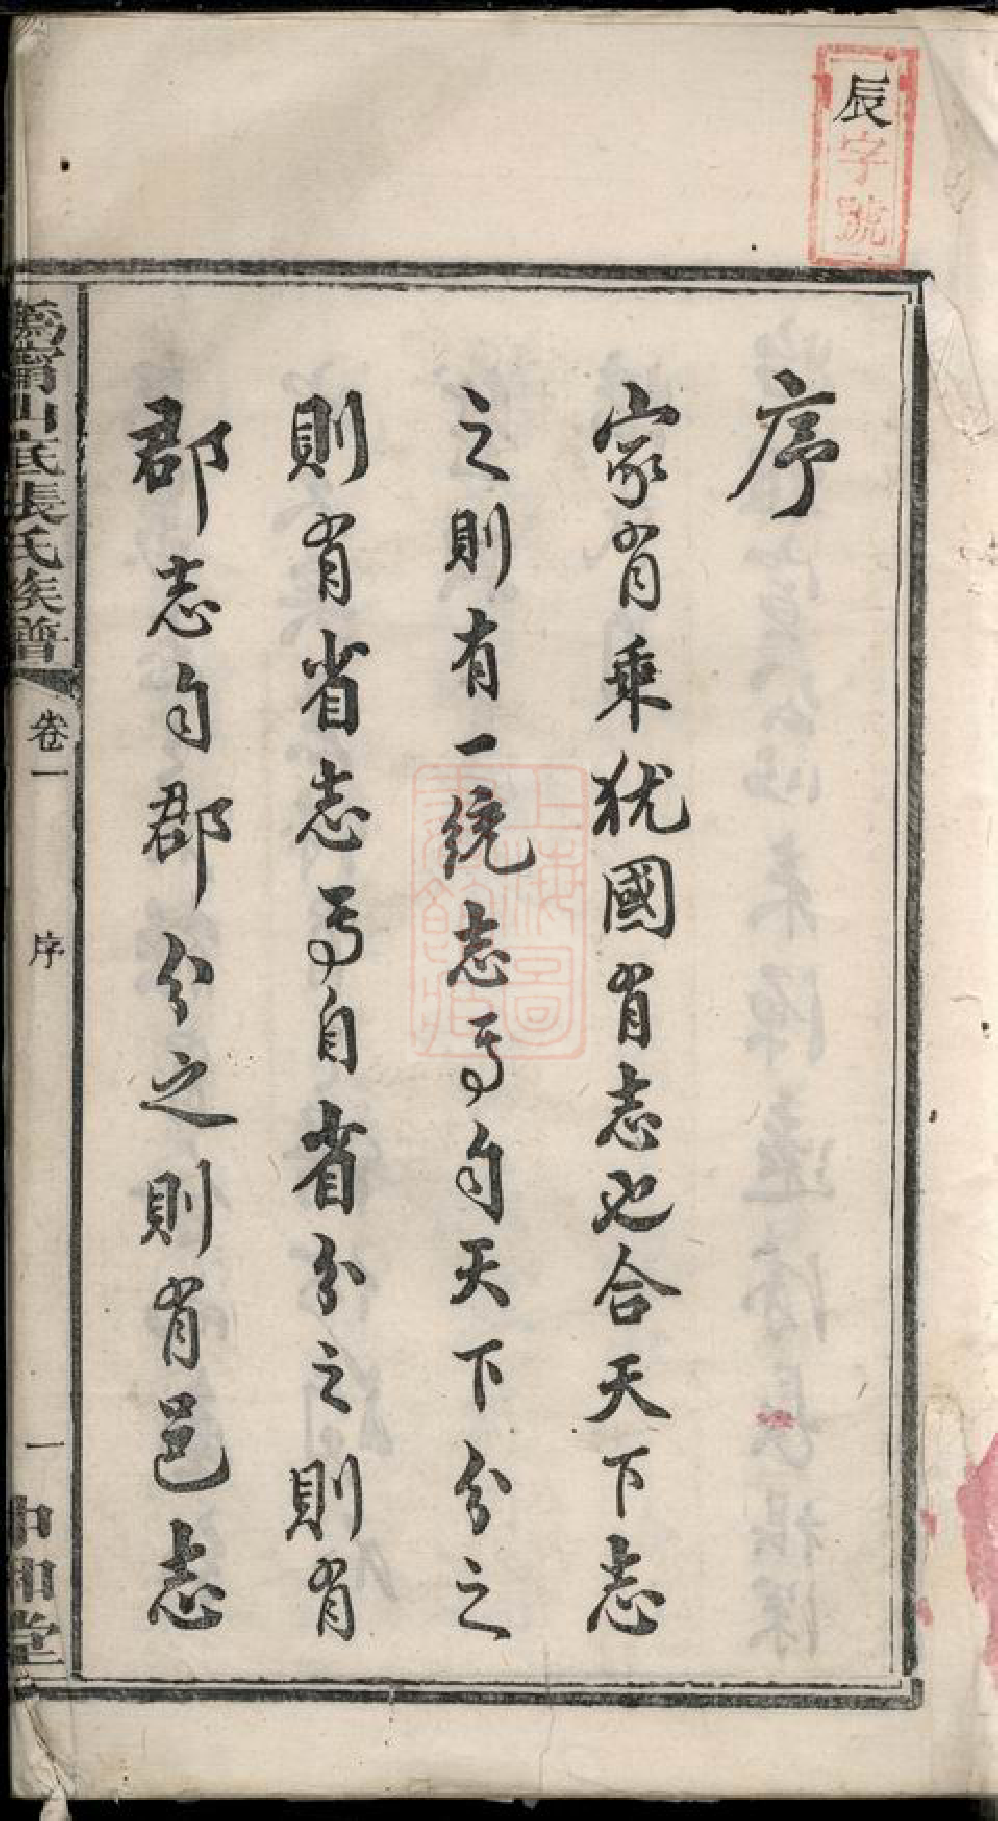 辰字號
序
家有乘猶國有志也合天下志
之則有一統志焉自天下分之
則有省志焉自省分之則有
郡志自郡分之則有邑志
山底張氏族譜
卷一
序
一
中和堂
上海圖書館藏